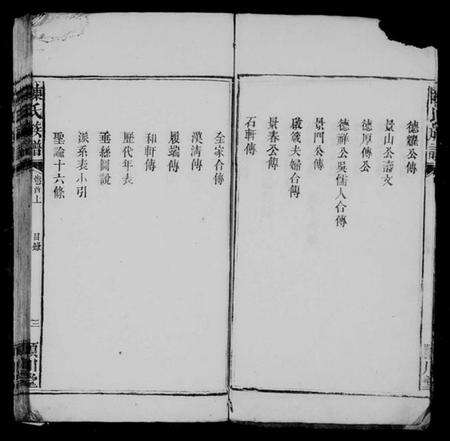 德耀公傳
景山公誄文
德厚傳公
德祥公吳孺人合傳
景門公傳
啟賢夫婦合傳
景春公傳
石軒傳
全家合傳
漢清傳
履端傳
和軒傳
歷代年表
垂絲圖說
派系表小引
聖諭十六條
陳氏族譜
卷首上
目錄
三
潁川堂